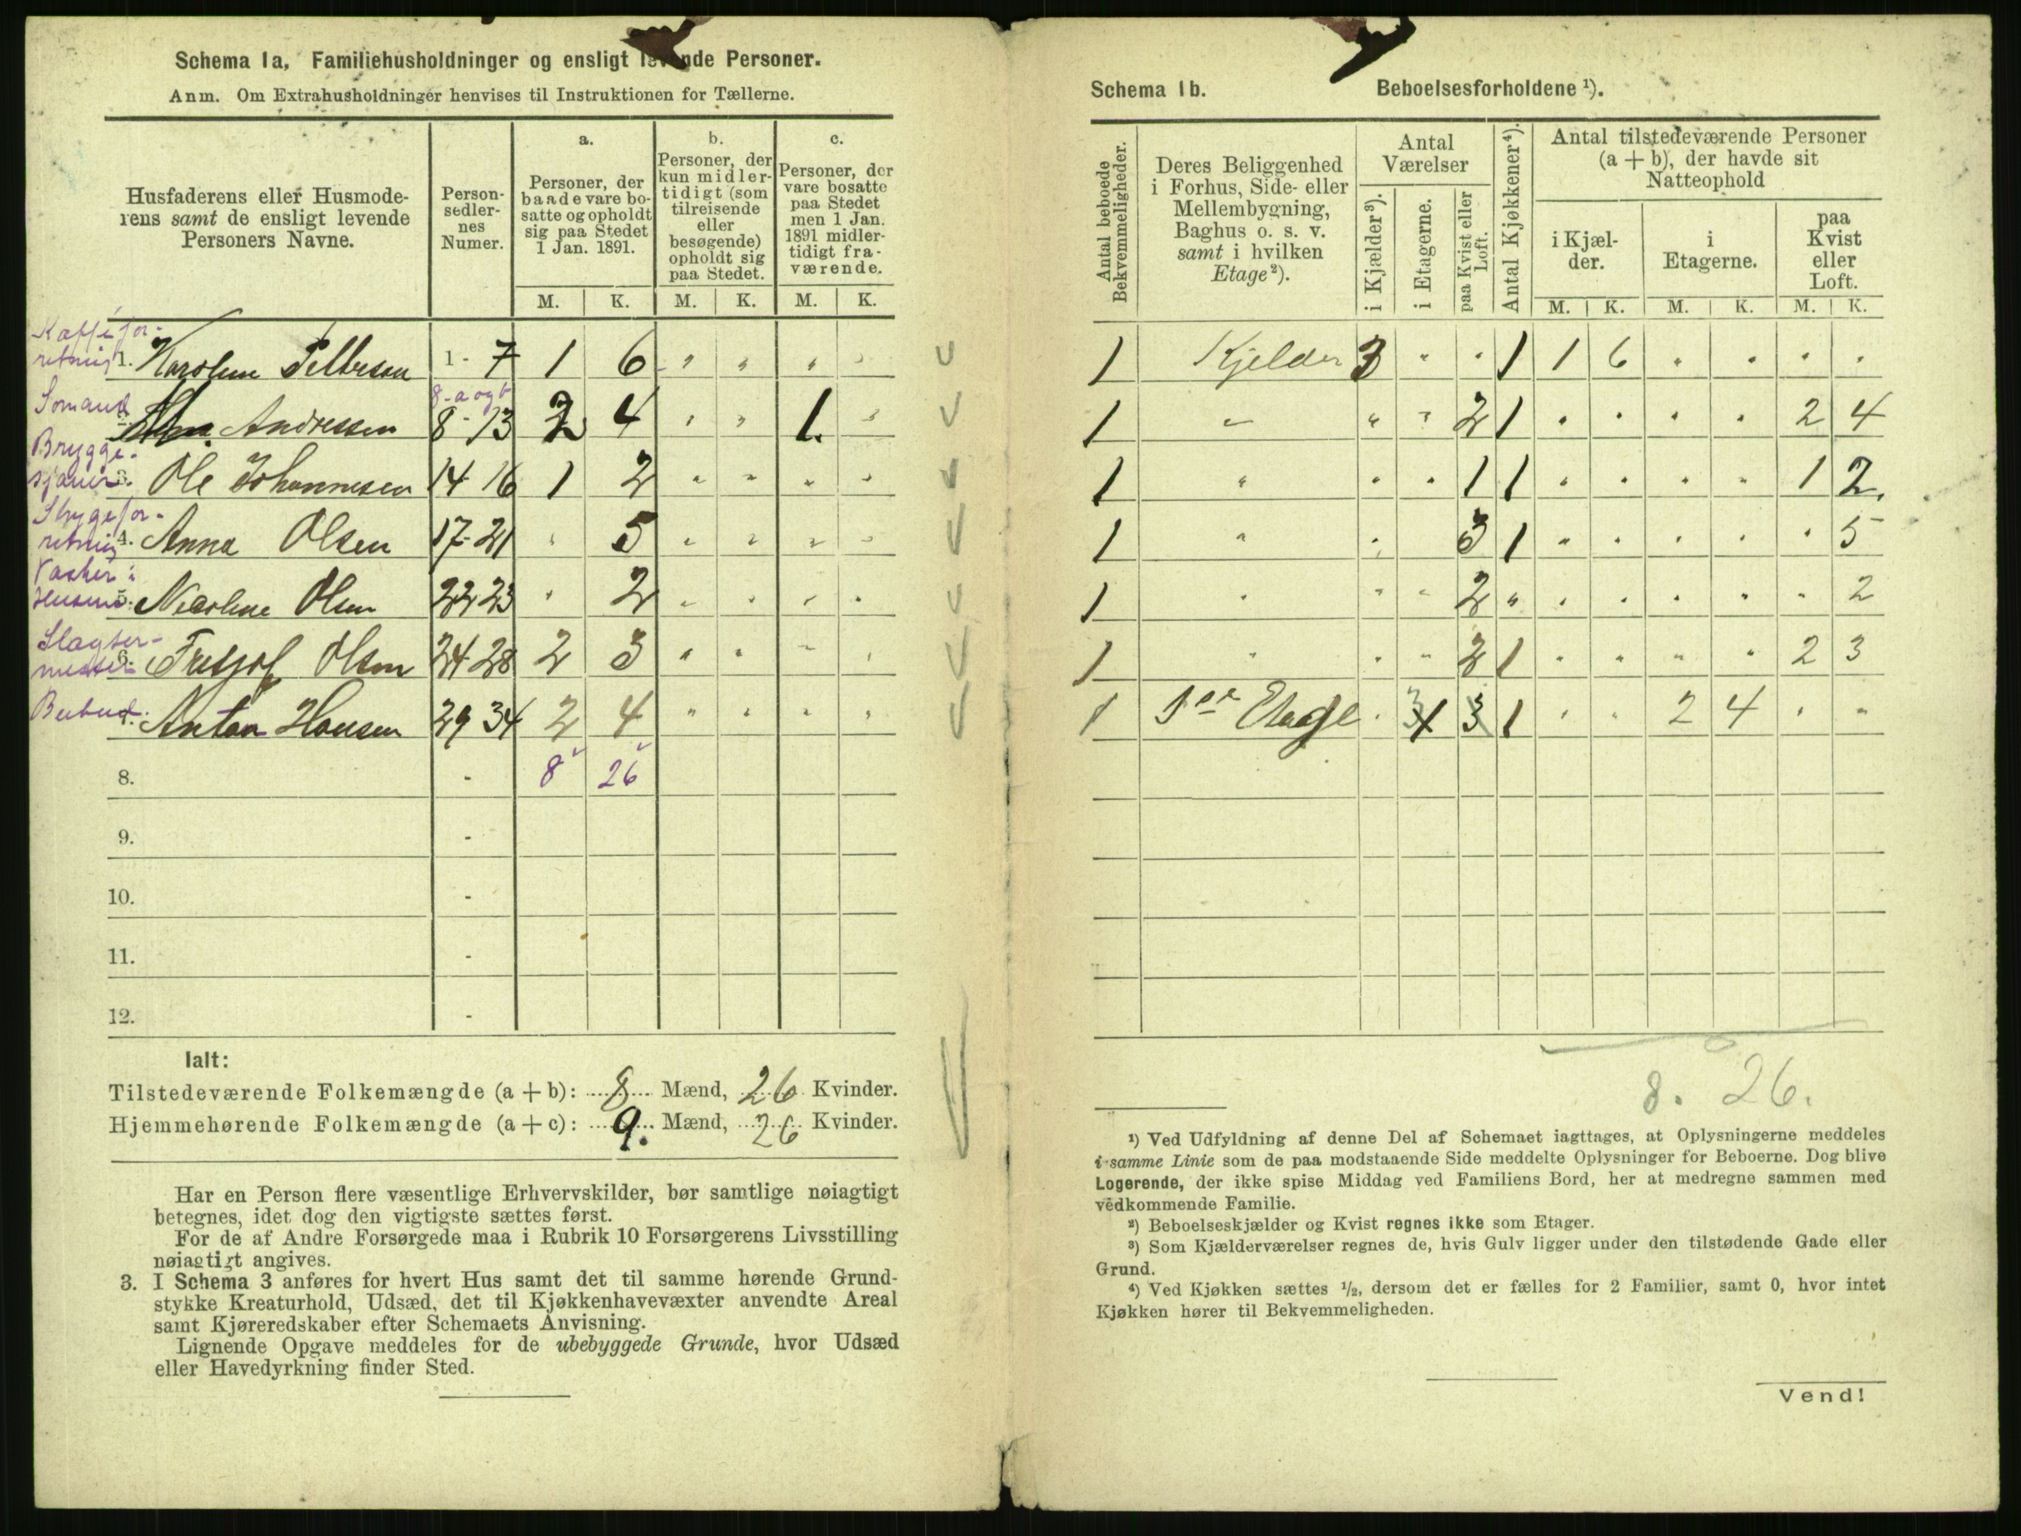 Schema 1a, Familiehusholdninger og ensligt levende Personer.
Anm. Om Extrahusholdninger henvises til Instruktionen for Tællerne.
Husfaderens eller Husmode-
rens samt de ensligt levende
Personers Navne.
Person-
sedler-
nes
Numer.
a.
Personer, der
baade vare bo-
satte og opholdt
sig paa Stedet
1 Jan. 1891.
b.
Personer, der
kun midler-
tidigt (som
tilreisende
eller
besøgende)
opholdt sig
paa Stedet.
c.
Personer, der
vare bosatte
paa Stedet
men 1 Jan.
1891 midler-
tidigt fra-
værende.
M. K. M. K. M. K.
Kaffefor-
retning 1. Karoline Pettersen 1 - 7 1 6 " " " "
8-a og b
Sømand Andressen 8 - 13 2 4 " " 1. "
Brygge-
sjauer 3. Ole Johannesen 14 16 1 2 " " " "
Strygefor-
retning 4. Anna Olsen 17-21 " 5 " " " "
Vasker i
Husene 5. Nicoline Olsen 22 23 " 2 " " " "
Slagter-
mester 6. Fritjof Olsen 24 28 2 3 " " " "
Bybud 7. Anton Hansen 29 34 2 4 " " " "
8. - 8 26
9. -
10. -
11. -
12. -
Ialt:
Tilstedeværende Folkemængde (a + b): 8 Mænd, 26 Kvinder.
Hjemmehørende Folkemængde (a + c): 9. Mænd, 26 Kvinder.
Har en Person flere væsentlige Erhvervskilder, bør samtlige nøiagtigt
betegnes, idet dog den vigtigste sættes først.
For de af Andre Forsørgede maa i Rubrik 10 Forsørgerens Livsstilling
nøiagtigt angives.
3. I Schema 3 anføres for hvert Hus samt det til samme hørende Grund-
stykke Kreaturhold, Udsæd, det til Kjøkkenhavevæxter anvendte Areal
samt Kjøreredskaber efter Schemaets Anvisning.
Lignende Opgave meddeles for de ubebyggede Grunde, hvor Udsæd
eller Havedyrkning finder Sted.
Schema 1b. Beboelsesforholdene ¹).
Antal beboede
Bekvemmeligheder.
Deres Beliggenhed
i Forhus, Side- eller
Mellembygning,
Baghus o. s. v.
samt i hvilken
Etage ²).
Antal
Værelser
i Kjælder ³).
i Etagerne.
paa Kvist eller
Loft.
Antal Kjøkkener ⁴).
Antal tilstedeværende Personer
(a + b), der havde sit
Natteophold
i Kjæl-
der.
i
Etagerne.
paa
Kvist
eller
Loft.
M. K. M. K. M. K.
1 Kjelder 3 " " 1 1 6 " " " "
1 " " " 2 1 " " " " 2 4
1 " " " 1 1 " " " " 1 2.
1 " " 3 1 " " " " " 5
1 " " " 2 " " " " " " 2
1 " " " 2 1 " " " " 2 3
1 1ste Etage " 3 3 1 " " 2 4 " "
8. 26.
¹) Ved Udfyldning af denne Del af Schemaet iagttages, at Oplysningerne meddeles
i samme Linie som de paa modstaaende Side meddelte Oplysninger for Beboerne. Dog blive
Logerende, der ikke spise Middag ved Familiens Bord, her at medregne sammen med
vedkommende Familie.
²) Beboelseskjælder og Kvist regnes ikke som Etager.
³) Som Kjælderværelser regnes de, hvis Gulv ligger under den tilstødende Gade eller
Grund.
⁴) Ved Kjøkken sættes ¹/₂, dersom det er fælles for 2 Familier, samt 0, hvor intet
Kjøkken hører til Bekvemmeligheden.
Vend!